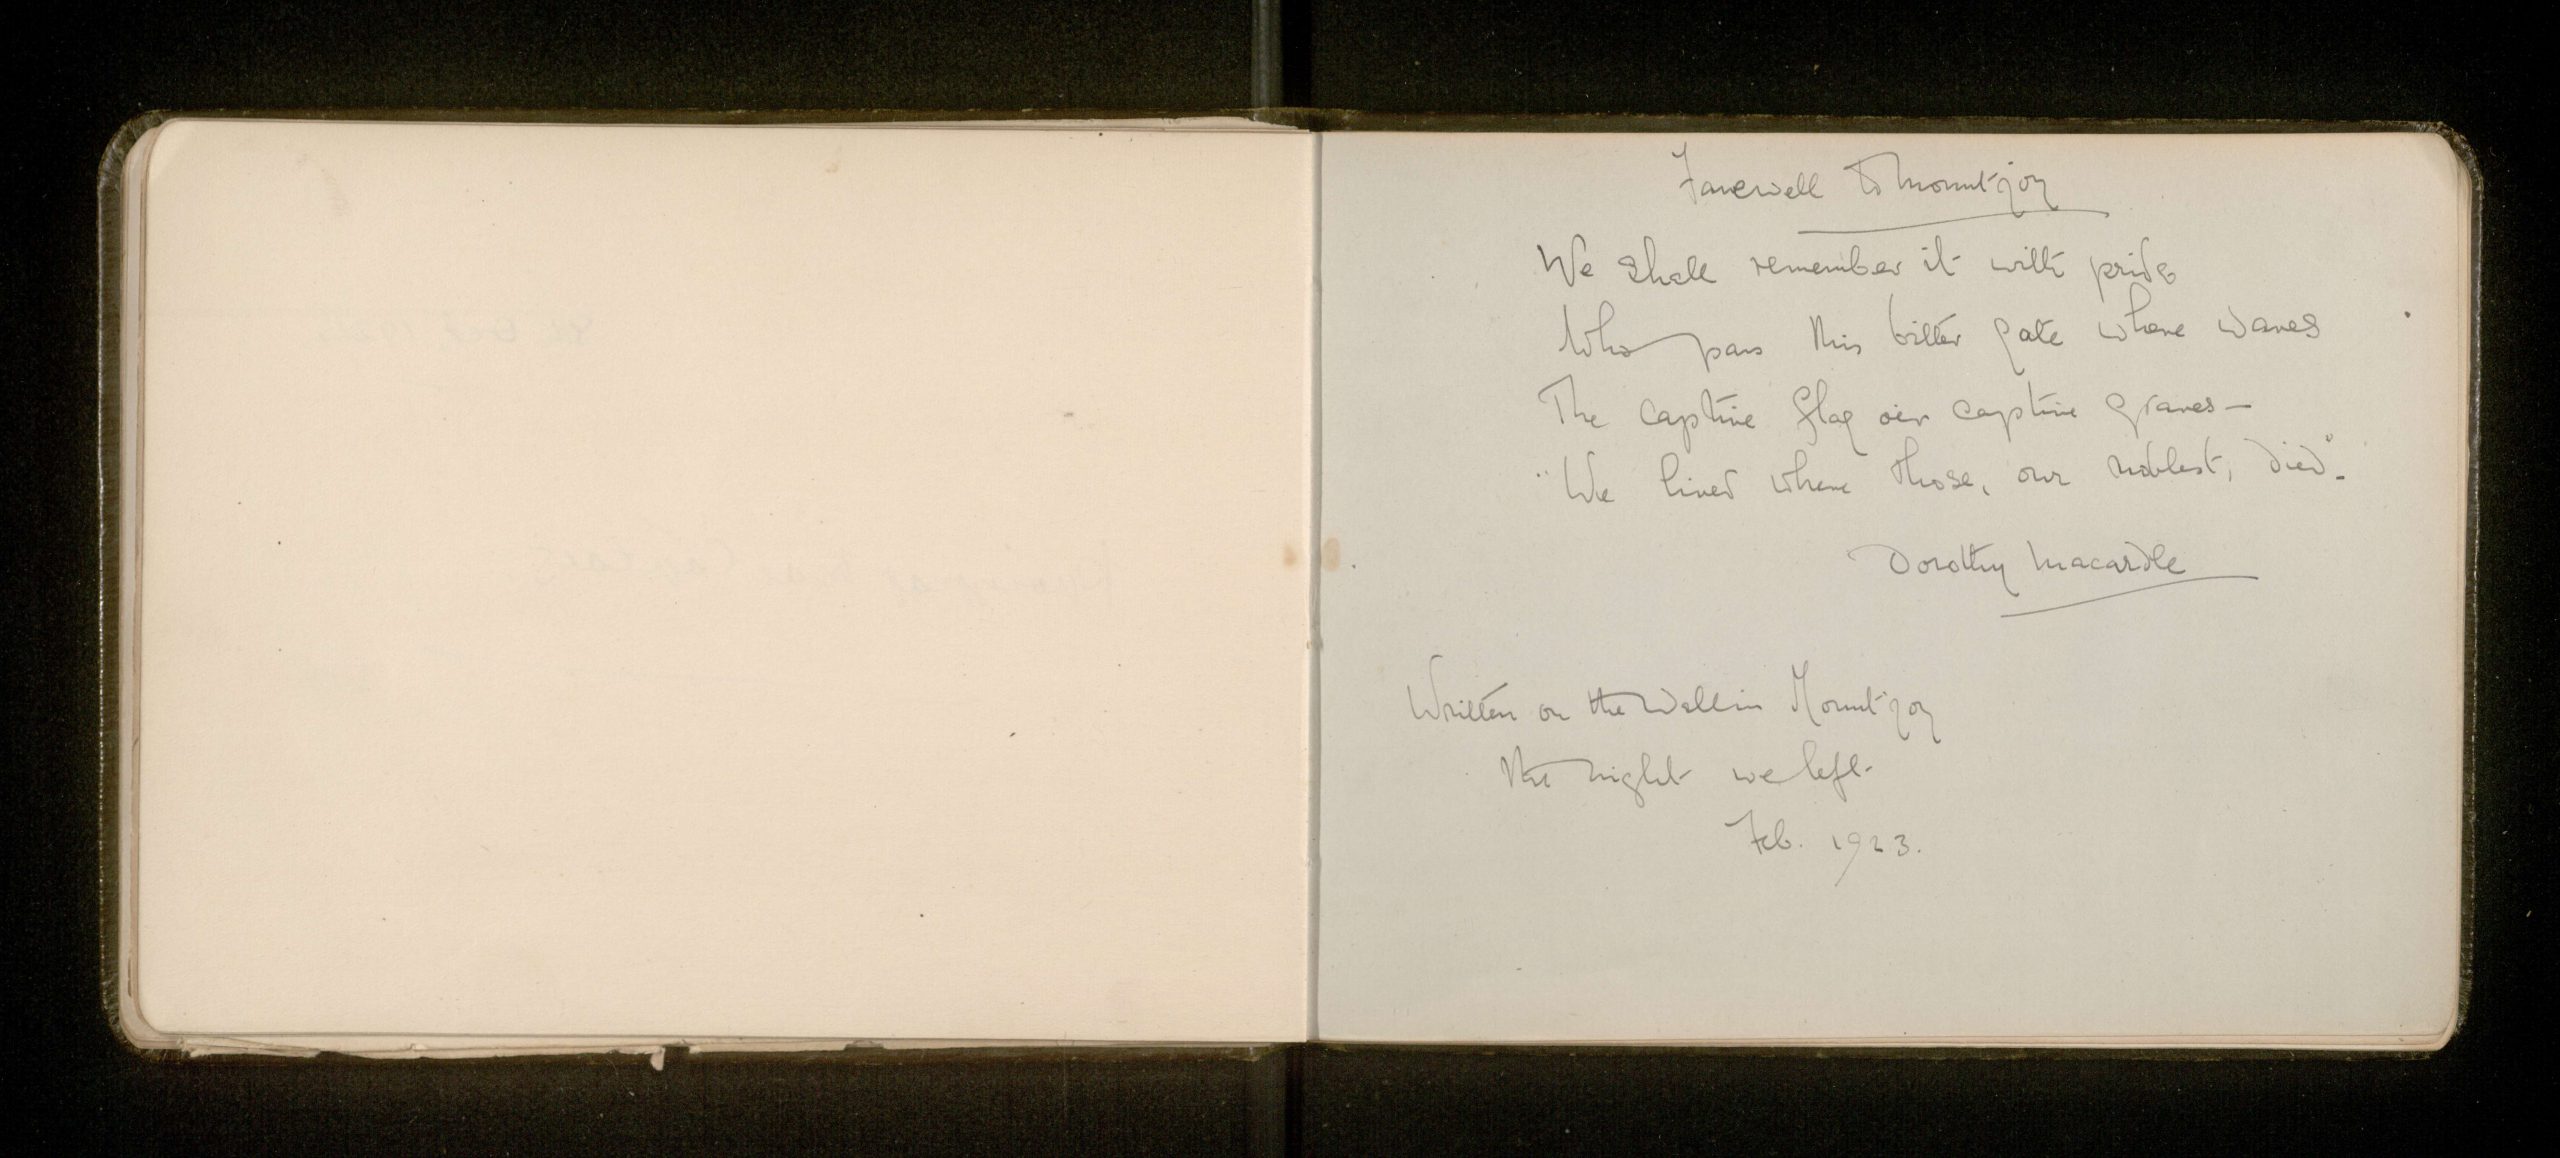 Farewell to Mountjoy
We shall remember it with pride
Who pass this bitter gate where waves
The captive flag o'er captive graves—
"We lived where those, our noblest, died".
Dorothy Macardle
Written on the Wall in Mountjoy
the night we left
Feb. 1923.